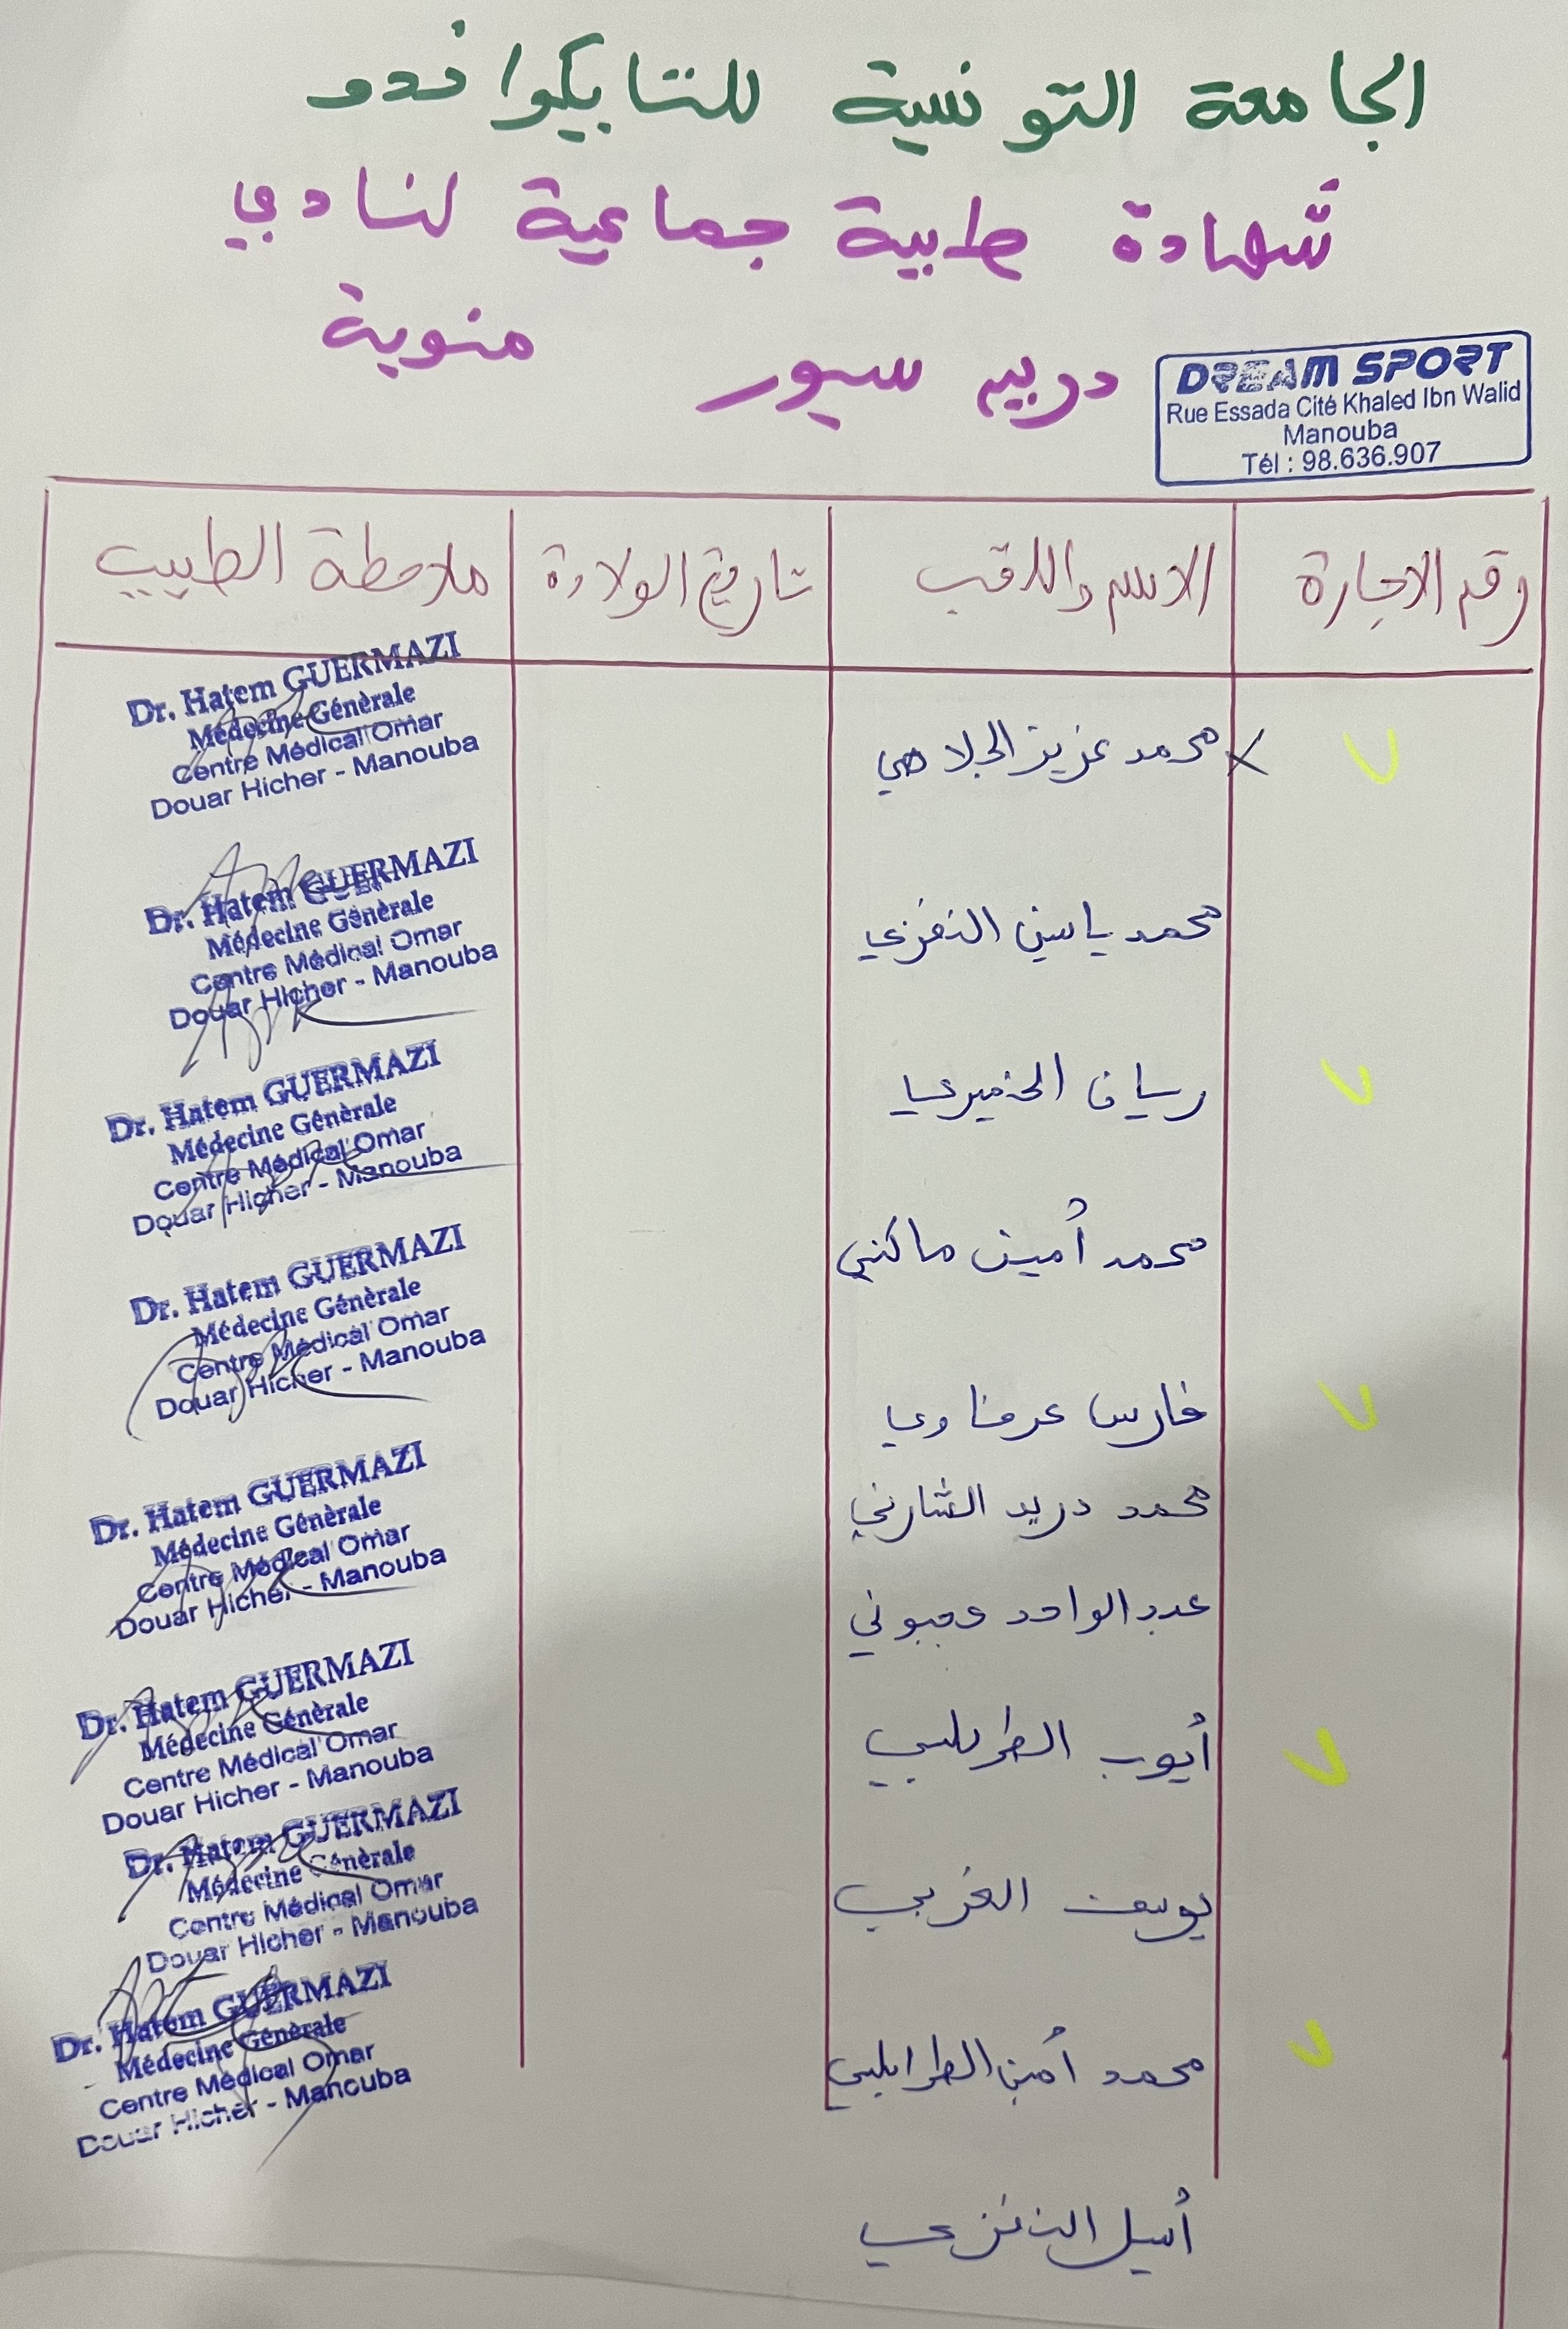 الجامعة التونسية للتايكواندو
شهادة طبية جماعية لنادي
دريم سبور منوبة
DREAM SPORT
Rue Essada Cité Khaled Ibn Walid
Manouba
Tél : 98.636.907
رقم الاجازة الاسم واللقب تاريخ الولادة ملاحظة الطبيب
محمد عزيز الجلاصي
Dr. Hatem GUERMAZI
Médecine Générale
Centre Médical Omar
Douar Hicher - Manouba
محمد ياسين النفزي
Dr. Hatem GUERMAZI
Médecine Générale
Centre Médical Omar
Douar Hicher - Manouba
ريان الخميري
Dr. Hatem GUERMAZI
Médecine Générale
Centre Médical Omar
Douar Hicher - Manouba
محمد أمين ماكني
Dr. Hatem GUERMAZI
Médecine Générale
Centre Médical Omar
Douar Hicher - Manouba
فارس عرفاوي
محمد دريد الشارني
Dr. Hatem GUERMAZI
Médecine Générale
Centre Médical Omar
Douar Hicher - Manouba
عبد الواحد
أيوب الطرابلسي
Dr. Hatem GUERMAZI
Médecine Générale
Centre Médical Omar
Douar Hicher - Manouba
يوسف الغربي
Dr. Hatem GUERMAZI
Médecine Générale
Centre Médical Omar
Douar Hicher - Manouba
محمد أمين الطرابلسي
Dr. Hatem GUERMAZI
Médecine Générale
Centre Médical Omar
Douar Hicher - Manouba
أسيل النفزي